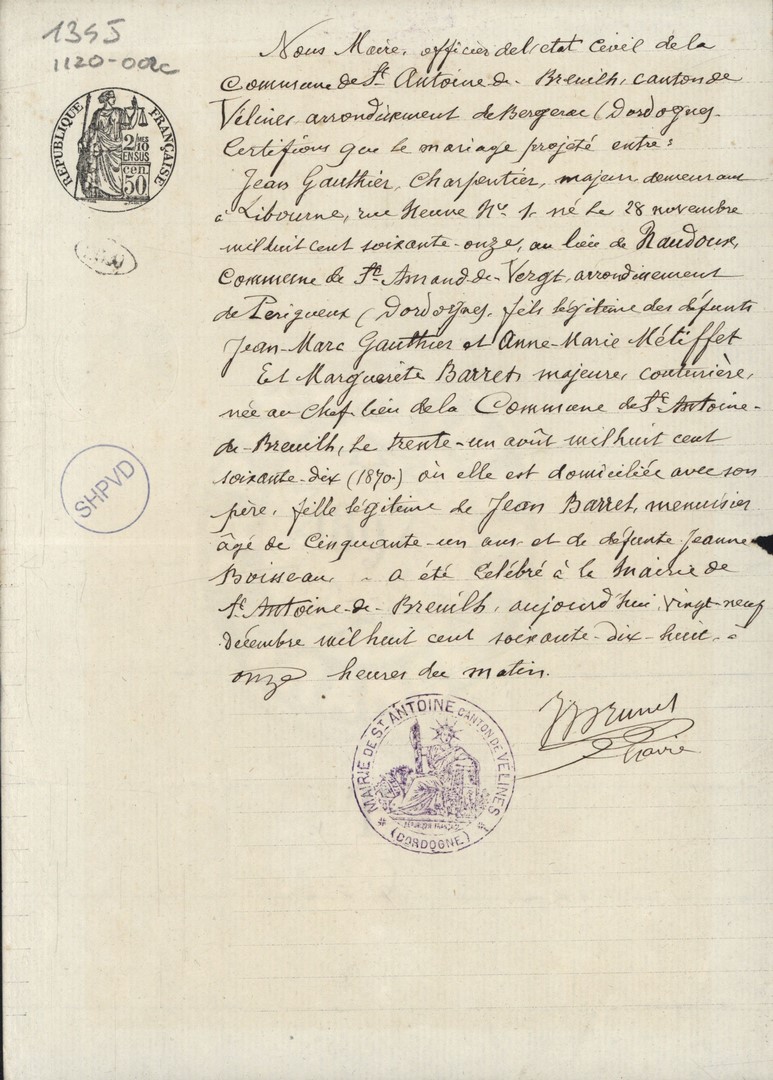 1355
1120-002c
RÉPUBLIQUE FRANÇAISE
2/10MES
EN SUS
CEN.
50
SHPVD
Nous Maire, officier de l'état civil de la
Commune de St Antoine-de-Breuilh, canton de
Vélines arrondissement de Bergerac (Dordogne
Certifions que le mariage projeté entre:
Jean Gauthier, Charpentier, majeur demeurant
à Libourne, rue Neuve No 1, né le 28 novembre
mil huit cent soixante-onze, au lieu de Naudoux,
Commune de St Amand-de-Vergt, arrondissement
de Périgueux (Dordogne, fils légitime des défunts
Jean-Marc Gauthier et Anne-Marie Métiffet
Et Marguerite Barret, majeure, couturière,
née au Chef lieu de la Commune de St Antoine-
de-Breuilh, le trente-un août mil huit cent
soixante-dix (1870) où elle est domiciliée avec son
père, fille légitime de Jean Barret, menuisier
âgé de Cinquante-un ans, et de défunte Jeanne
Boisseau, - a été Célébré à la Mairie de
St Antoine-de-Breuilh, aujourd'hui vingt-neuf
décembre mil huit cent soixante-dix-huit, à
onze heures du matin.
Brunet
MAIRIE DE ST ANTOINE CANTON DE VÉLINES
RÉPUBLIQUE FRANÇAISE
(DORDOGNE)